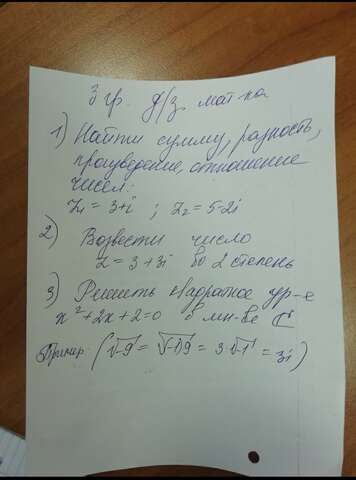 3 гр. д/з мат-ка
1) Найти сумму, разность,
произведение, отношение
чисел:
z₁ = 3+i ; z₂ = 5-2i
2) Возвести число
z = 3 + 3i во 2 степень
3) Решить квадратное ур-е
x²+2x+2=0 в мн-ве ℂ
Пример: (√-9 = √(-1)9 = 3·√-1 = 3i)